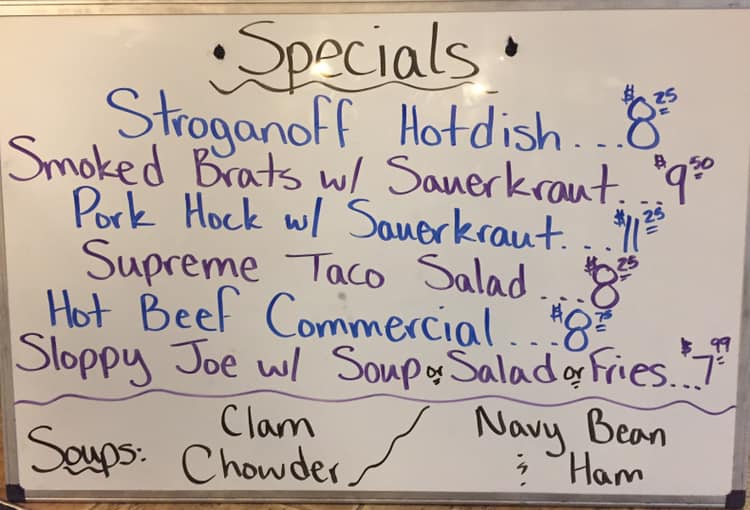 • Specials •
Stroganoff Hotdish...$8.25
Smoked Brats w/ Sauerkraut...$9.50
Pork Hock w/ Sauerkraut...$11.25
Supreme Taco Salad....$8.25
Hot Beef Commercial...$8.75
Sloppy Joe w/ Soup or Salad or Fries...$7.99
Soups: Clam Chowder / Navy Bean & Ham